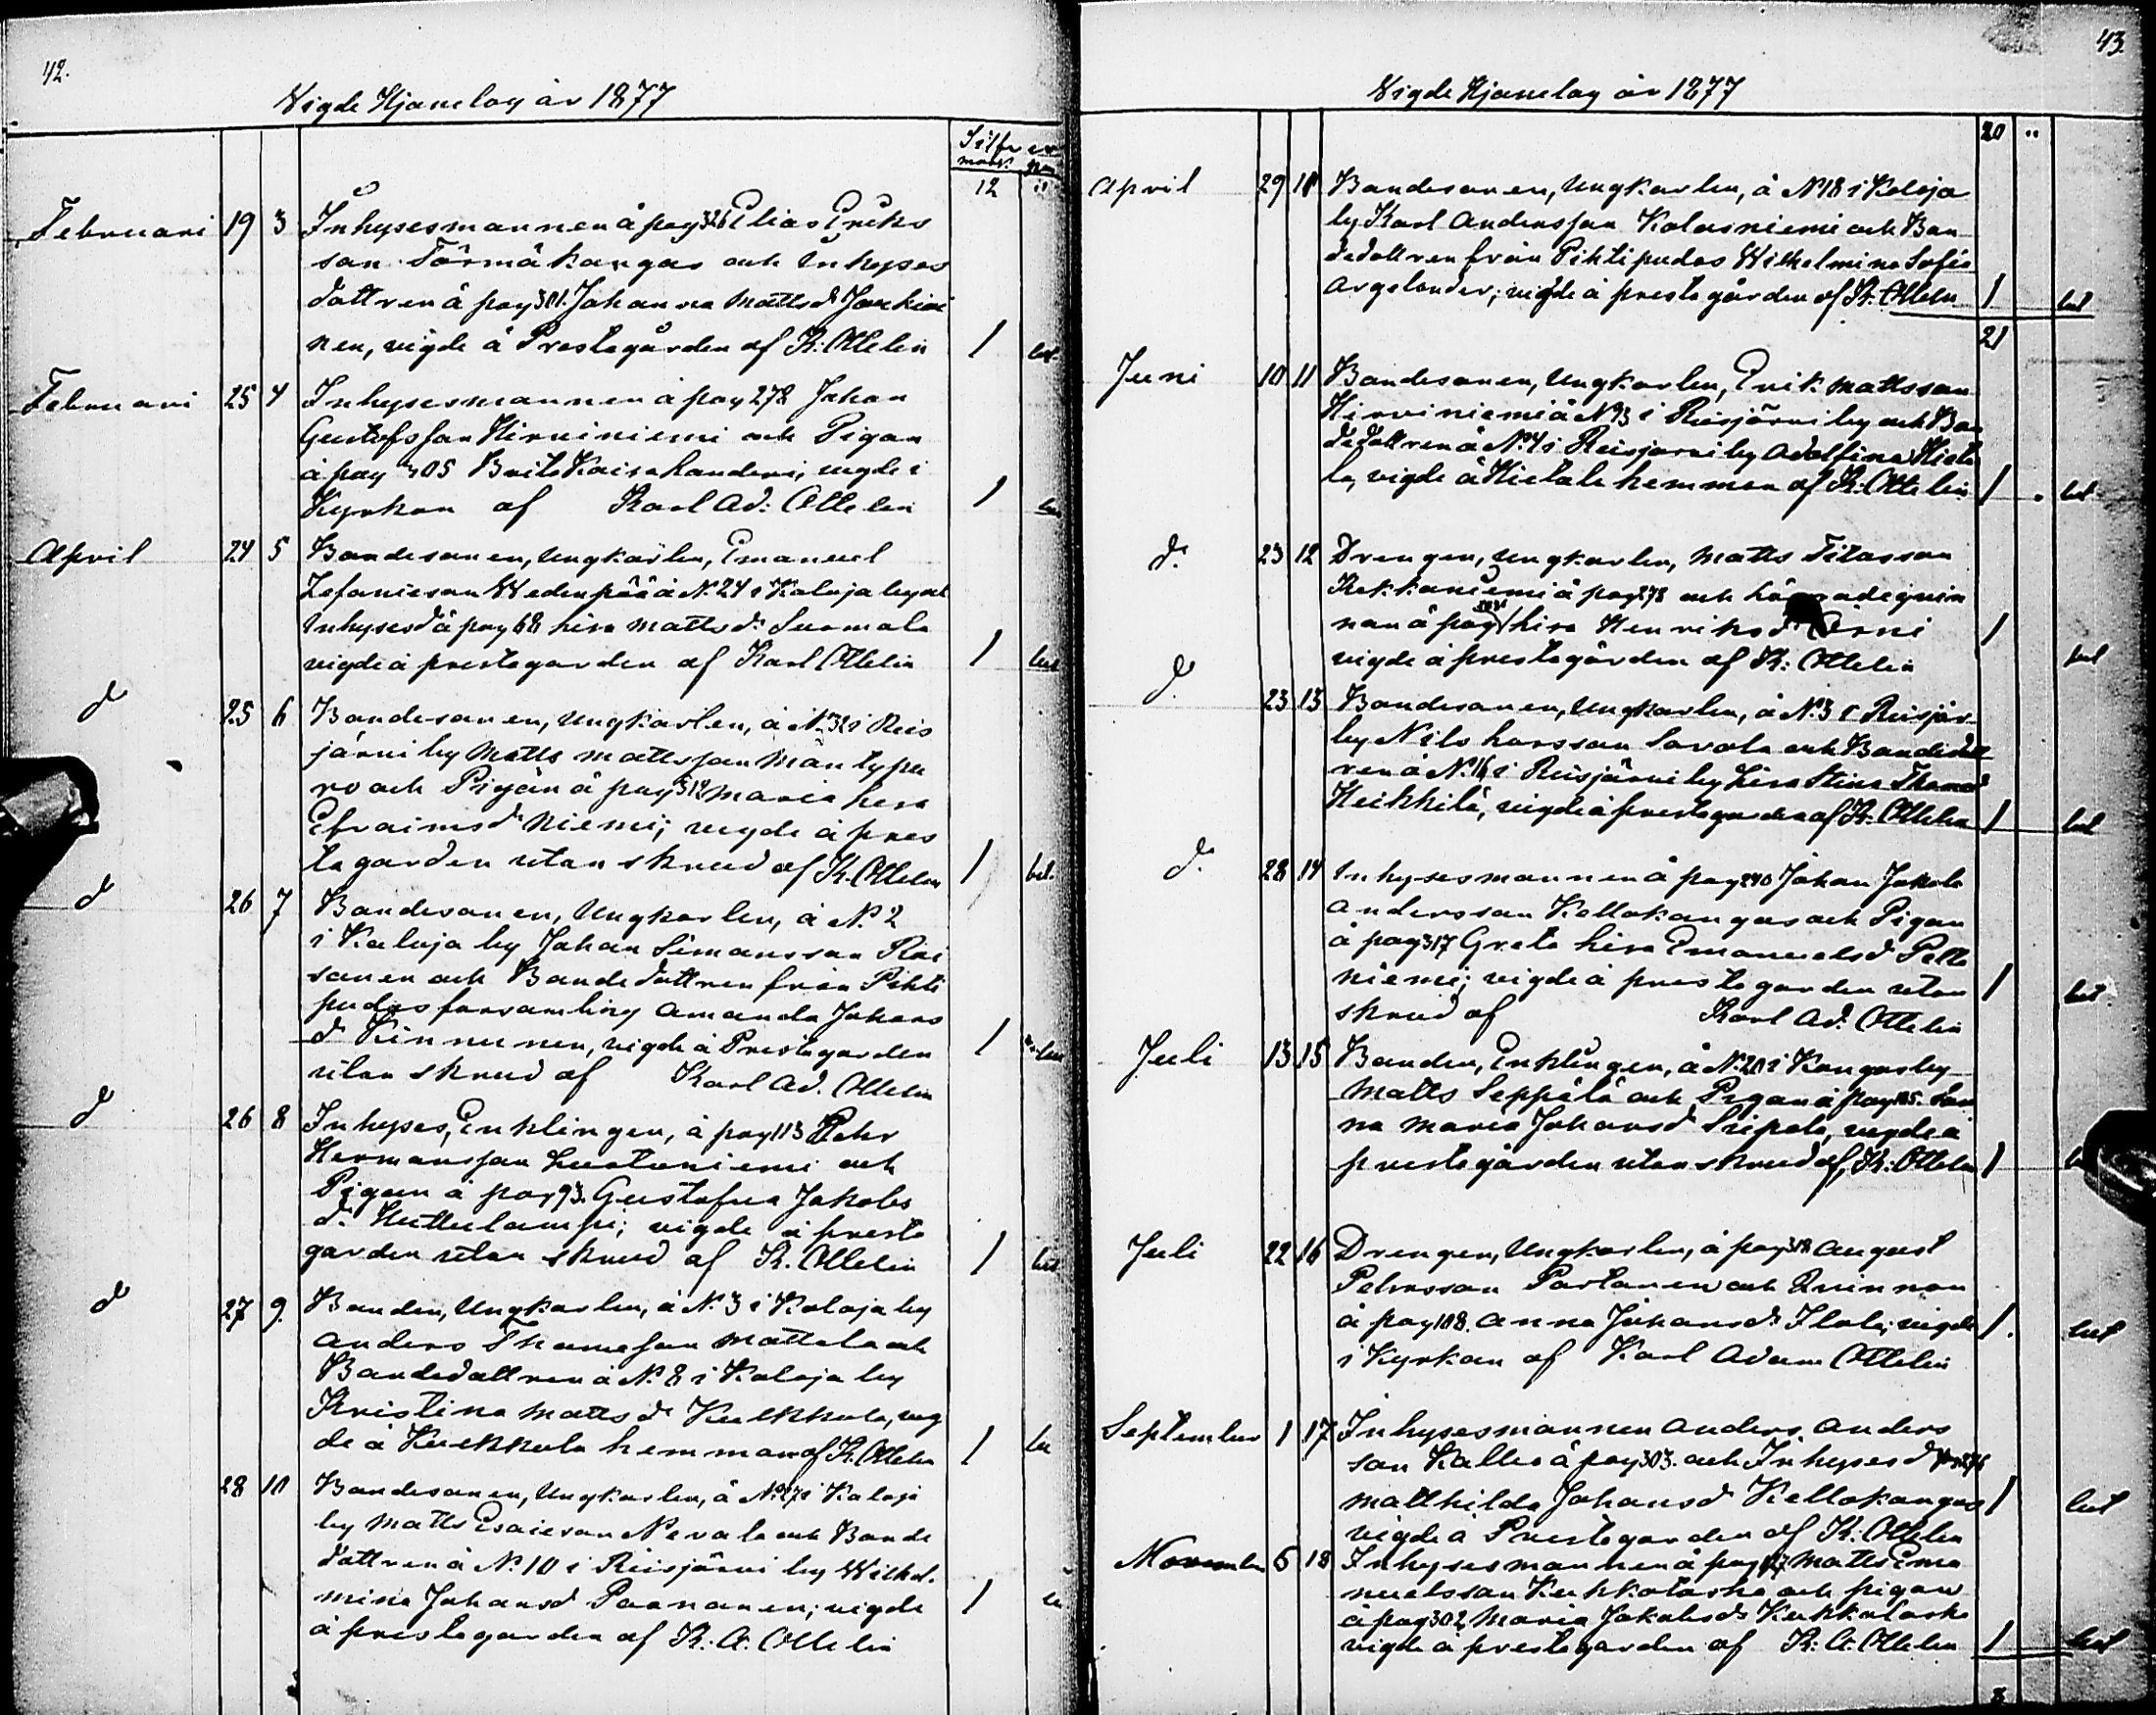 42.
Vigde Hjonelag år 1877
Silfver
mark pn
12 "
Februari 19 3 Inhysesmannen å pag 326 Elias Eriks
son Törmäkangas och Inhyses
dottren å pag 301. Johanna Mattsd
nen, vigde å Prestegården af K. Ottelin 1 bet.
Februari 25 4 Inhysesmannen å pag 278 Johan
Gustafsson Hirviniemi och Pigan
å pag 305 Brita Kaisa vigde i
Kyrkan af Karl Ad: Ottelin 1
April 24 5 Bondesonen, Ungkarlen, Emanuel
Zefaniesson Wedenpää å N. 24 i Kalaja by och
Inhysesd å pag 68 Lisa Mattsd. Suomala
vigde å prestegården af Karl Ottelin 1 bet
d 25 6 Bondesonen, Ungkarlen, å N. 32 i Reis
järvi by Matts Mattsson Mäntypu
ro och Pigan å pag 312 Maria Lisa
Efraimsd. Niemi; vigde å pres
tegården utan skrud af K. Ottelin 1 bet.
d 26 7 Bondesonen, Ungkarlen, å N. 2
i Kalaja by Johan Simonsson Räi
sänen och Bondedottren från Pihti
pudas församling Amanda Johans
d Kinnunen, vigde å Prestegården 1
utan skrud af Karl Ad. Ottelin
d 26 8 Inhyses, Enklingen, å pag 113 Pehr
Hermansson Luotoniemi och
Pigan å pag 93. Gustafva Jakobs
d. Huttulampi; vigde å preste
gården utan skrud af K. Ottelin 1 bet
d 27 9. Bonden, Ungkarlen, å N. 3 i Kalaja by
Anders Thomasson Mattila och
Bondedottren å N. 8 i Kalaja by
Kristina Mattsd Kukkula, vig
de å Kukkula hemman af K. Ottelin 1
28 10 Bondesonen, Ungkarlen, å N. 27 i Kalaja
by Matts Esaiesson Nevala och Bonde
dottren å N. 10 i Reisjärvi by Wilhel.
mina Johansd Paananen; vigde 1
å prestegården af K. A. Ottelin
43.
Vigde Hjonelag år 1877
20 "
April 29 10 Bondesonen, Ungkarlen, å N 18 i Kalaja
by Karl Andersson Kalasniemi och Bon
dedottren från Pihtipudas Wilhelmina Sofia
Argelander; vigde å prestegården af K. Ottelin 1 bet
21
Juni 10 11 Bondesonen, Ungkarlen, Erik Mattsson
Hirviniemi å N. 3 i Reisjärvi by och Bon
dedottren å N. 4 i Reisjärvi by Adolfina Hieta
la, vigde å Hietala hemman af K. Ottelin 1 bet
d. 23 12 Drengen, Ungkarlen, Matts Titusson
Kekkoniemi å pag 278 och
nan å pag Lisa Henriksd
vigde å prestegården af K. Ottelin 1 bet
d. 23 13 Bondesonen, Ungkarlen, å N. 3 i Reisjär
by Nils Larsson Savola och Bondedott
ren å N. 16 i Reisjärvi by Lisa Stina Thomasd
Heikkilä, vigde å prestegården af K. Ottelin 1 bet
d. 28 14 Inhysesmannen å pag 290 Johan Jakob
Andersson Kellokangas och Pigan
å pag 317 Greta Lisa Emanuelsd Pelto
niemi; vigde å prestegården utan 1 bet
skrud af Karl Ad. Ottelin
Juli 13 15 Bonden, Enklingen, å N. 20 i Kangas by
Matts Seppälä och Pigan å pag San
na Maria Johansd Siipola, vigde å
prestegården utan skrud af K. Ottelin 1
Juli 22 16 Drengen, Ungkarlen, å pag 318 August
Pehrsson Partanen och Qvinnan
å pag 108. Anna Johansd. Ilola; vigde 1. bet
i Kyrkan af Karl Adam Ottelin
September 1 17 Inhysesmannen Anders Anders
son Kallio å pag 303. och Inhysesd
Mathilda Johansd Kellokangas 1 bet
vigde å Prestegården af K. Ottelin
November 6 18 Inhysesmannen å pag Matts Ema
nuelsson Kukkolasko och pigan
å pag 302 Maria Jakobsd. Kukkolasko
vigde å prestegården af K. A. Ottelin 1 bet
8